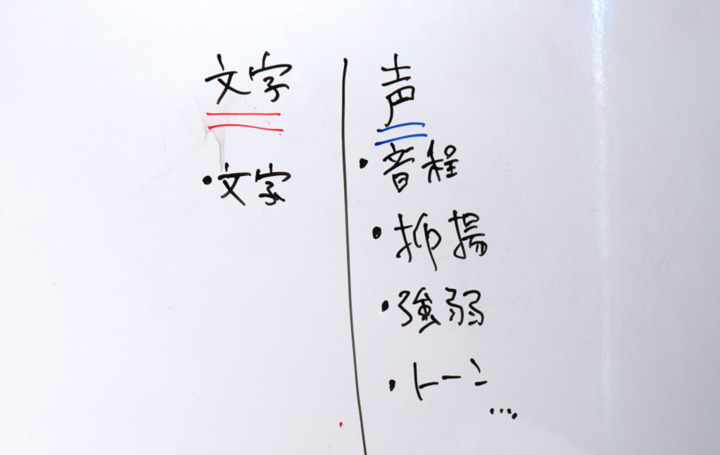 文字
・文字
声
・音程
・抑揚
・強弱
・トーン
...